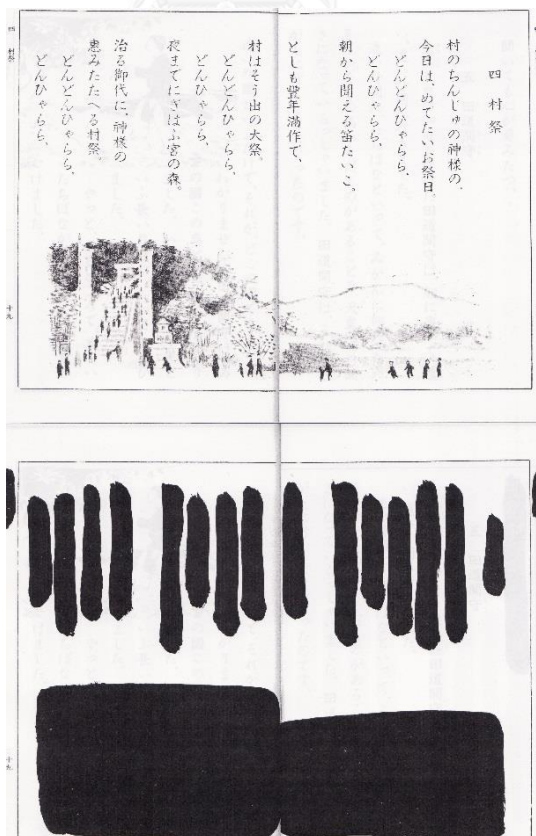 四 村祭
村のちんじゅの神様の、
今日は、めでたいお祭日。
どんどんひゃらら、
どんひゃらら、
朝から聞える笛たいこ。
としも豊年満作で、
村はそう出の大祭。
どんどんひゃらら、
どんひゃらら、
夜までにぎはふ宮の森。
治る御代に、神様の
恵みたたへる村祭。
どんどんひゃらら、
どんひゃらら、
四 村祭
十九
十九